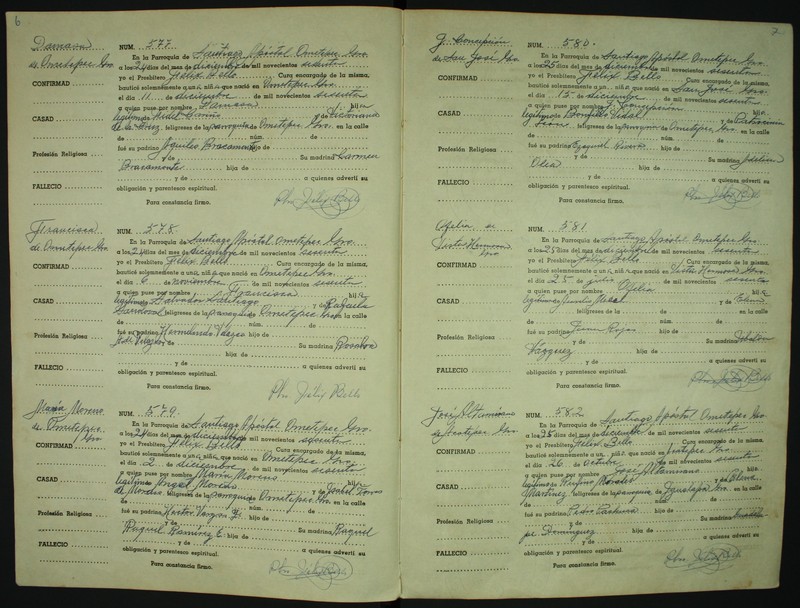 6
Damasa
de Ometepec Gro.
CONFIRMAD
CASAD
Profesión Religiosa
FALLECIO
NUM. 577.
En la Parroquia de Santiago Apóstol Ometepec Gro.
a los 24 días del mes de diciembre de mil novecientos sesenta
yo el Presbítero Félix Bello Cura encargado de la misma,
bauticé solemnemente a un niñ que nació en Ometepec Gro.
el día 11 de diciembre de mil novecientos sesenta
a quien puse por nombre Damasa hij
legítim de y de
de la Cruz feligreses de la parroquia de Ometepec, Gro. en la calle
de núm. de
fué su padrino Aquileo Bracamonte hijo de
y de Su madrina Carmen
Bracamonte hija de
y de a quienes advertí su
obligación y parentesco espiritual.
Para constancia firmo. Pbro. Félix Bello
Francisca
de Ometepec Gro.
CONFIRMAD
CASAD
Profesión Religiosa
FALLECIO
NUM. 578.
En la Parroquia de Santiago Apóstol Ometepec Gro.
a los 24 días del mes de diciembre de mil novecientos sesenta
yo el Presbítero Félix Bello Cura encargado de la misma,
bauticé solemnemente a un niñ que nació en Ometepec Gro.
el día de noviembre de mil novecientos sesenta
a quien puse por nombre Francisca hij
legítim de Salvador Santiago y de
Sandoval feligreses de la parroquia de Ometepec Gro. en la calle
de núm. de
fué su padrino hijo de
y de Su madrina Rosalva
hija de
y de a quienes advertí su
obligación y parentesco espiritual.
Para constancia firmo. Pbro. Félix Bello
María Moreno
de Ometepec,
Gro.
CONFIRMAD
CASAD
Profesión Religiosa
FALLECIO
NUM. 579.
En la Parroquia de Santiago Apóstol Ometepec Gro.
a los 24 días del mes de diciembre de mil novecientos sesenta
yo el Presbítero Félix Bello Cura encargado de la misma,
bauticé solemnemente a un niñ que nació en Ometepec Gro.
el día 2 de diciembre de mil novecientos sesenta
a quien puse por nombre María Moreno hij
legítim de Angel Moreno y de Isabel
feligreses de la parroquia de Ometepec, Gro. en la calle
de núm. de
fué su padrino Néstor Vargas hijo de
y de Su madrina Raquel
Raquel Ramírez E. hija de
y de a quienes advertí su
obligación y parentesco espiritual.
Para constancia firmo. Pbro. Félix Bello
7
G. Concepción
de San José Gro
CONFIRMAD
CASAD
Profesión Religiosa
FALLECIO
NUM. 580.
En la Parroquia de Santiago Apóstol Ometepec Gro.
a los 25 días del mes de diciembre de mil novecientos sesenta
yo el Presbítero Félix Bello Cura encargado de la misma,
bauticé solemnemente a un niñ que nació en San José Gro.
el día 15 de diciembre de mil novecientos sesenta
a quien puse por nombre G. Concepción hij
legítim de Bonifacio Vidal y de Patrocinia
feligreses de la parroquia de Ometepec, Gro. en la calle
de núm. de
fué su padrino Ezequiel Rivera hijo de
y de Su madrina Idelia
Olea hija de
y de a quienes advertí su
obligación y parentesco espiritual.
Para constancia firmo. Pbro. Félix Bello
Ofelia de
Gro.
CONFIRMAD
CASAD
Profesión Religiosa
FALLECIO
NUM. 581
En la Parroquia de Santiago Apóstol Ometepec Gro.
a los 25 días del mes de diciembre de mil novecientos sesenta
yo el Presbítero Félix Bello Cura encargado de la misma,
bauticé solemnemente a un niñ que nació en Gro.
el día 25 de julio de mil novecientos sesenta
a quien puse por nombre Ofelia hij
legítim de y de
feligreses de la de en la calle
de núm. de
fué su padrino Juan Rojas hijo de
y de Su madrina
Vázquez hija de
y de a quienes advertí su
obligación y parentesco espiritual.
Para constancia firmo. Pbro. Félix Bello
José Altamirano
Gro
CONFIRMAD
CASAD
Profesión Religiosa
FALLECIO
NUM. 582
En la Parroquia de Santiago Apóstol Ometepec Gro
a los 25 días del mes de diciembre de mil novecientos sesenta
yo el Presbítero Félix Bello Cura encargado de la misma,
bauticé solemnemente a un niñ que nació en Gro.
el día 26 de Octubre de mil novecientos sesenta
a quien puse por nombre José Altamirano hij
legítim de Morales y de Elena
Martínez feligreses de la parroquia de Igualapa Gro. en la calle
de núm. de
fué su padrino Pedro hijo de
y de Su madrina
Domínguez hija de
y de a quienes advertí su
obligación y parentesco espiritual.
Para constancia firmo. Pbro. Félix Bello